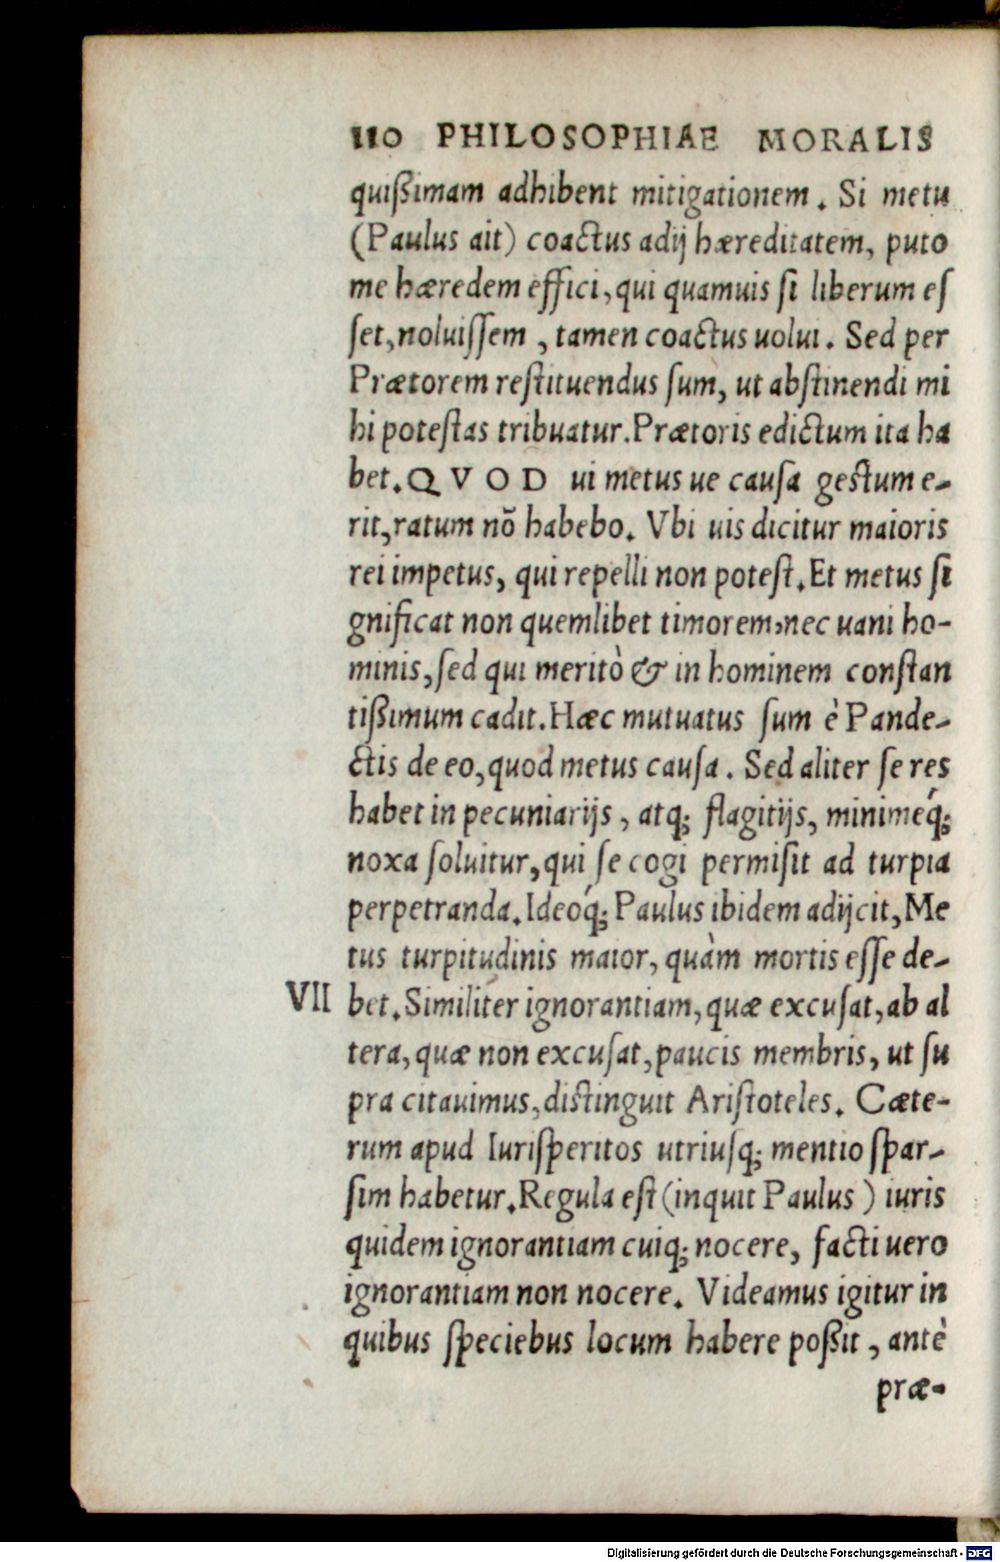 110 PHILOSOPHIAE MORALIS
quißimam adhibent mitigationem. Si metu
(Paulus ait) coactus adij hæreditatem, puto
me hæredem effici, qui quamuis ſi liberum eſ
ſet, noluiſſem, tamen coactus uolui. Sed per
Prætorem reſtituendus ſum, ut abſtinendi mi
hi poteſtas tribuatur. Prætoris edictum ita ha
bet. QVOD ui metus ue cauſa geſtum e-
rit, ratum nõ habebo. Vbi uis dicitur maioris
rei impetus, qui repelli non poteſt. Et metus ſi
gnificat non quemlibet timorem, nec uani ho-
minis, ſed qui meritò & in hominem conſtan
tißimum cadit. Hæc mutuatus ſum è Pande-
ctis de eo, quod metus cauſa. Sed aliter ſe res
habet in pecuniarijs, atq; flagitijs, minimeq́;
noxa ſoluitur, qui ſe cogi permiſit ad turpia
perpetranda. Ideoq́; Paulus ibidem adijcit, Me
tus turpitudinis maior, quàm mortis eſſe de-
VII bet. Similiter ignorantiam, quæ excuſat, ab al
tera, quæ non excuſat, paucis membris, ut ſu
pra citauimus, diſtinguit Ariſtoteles. Cæte-
rum apud Iuriſperitos utriuſq; mentio ſpar-
ſim habetur. Regula eſt (inquit Paulus) iuris
quidem ignorantiam cuiq; nocere, facti uero
ignorantiam non nocere. Videamus igitur in
quibus ſpeciebus locum habere poßit, antè
præ-
Digitalisierung gefördert durch die Deutsche Forschungsgemeinschaft - DFG